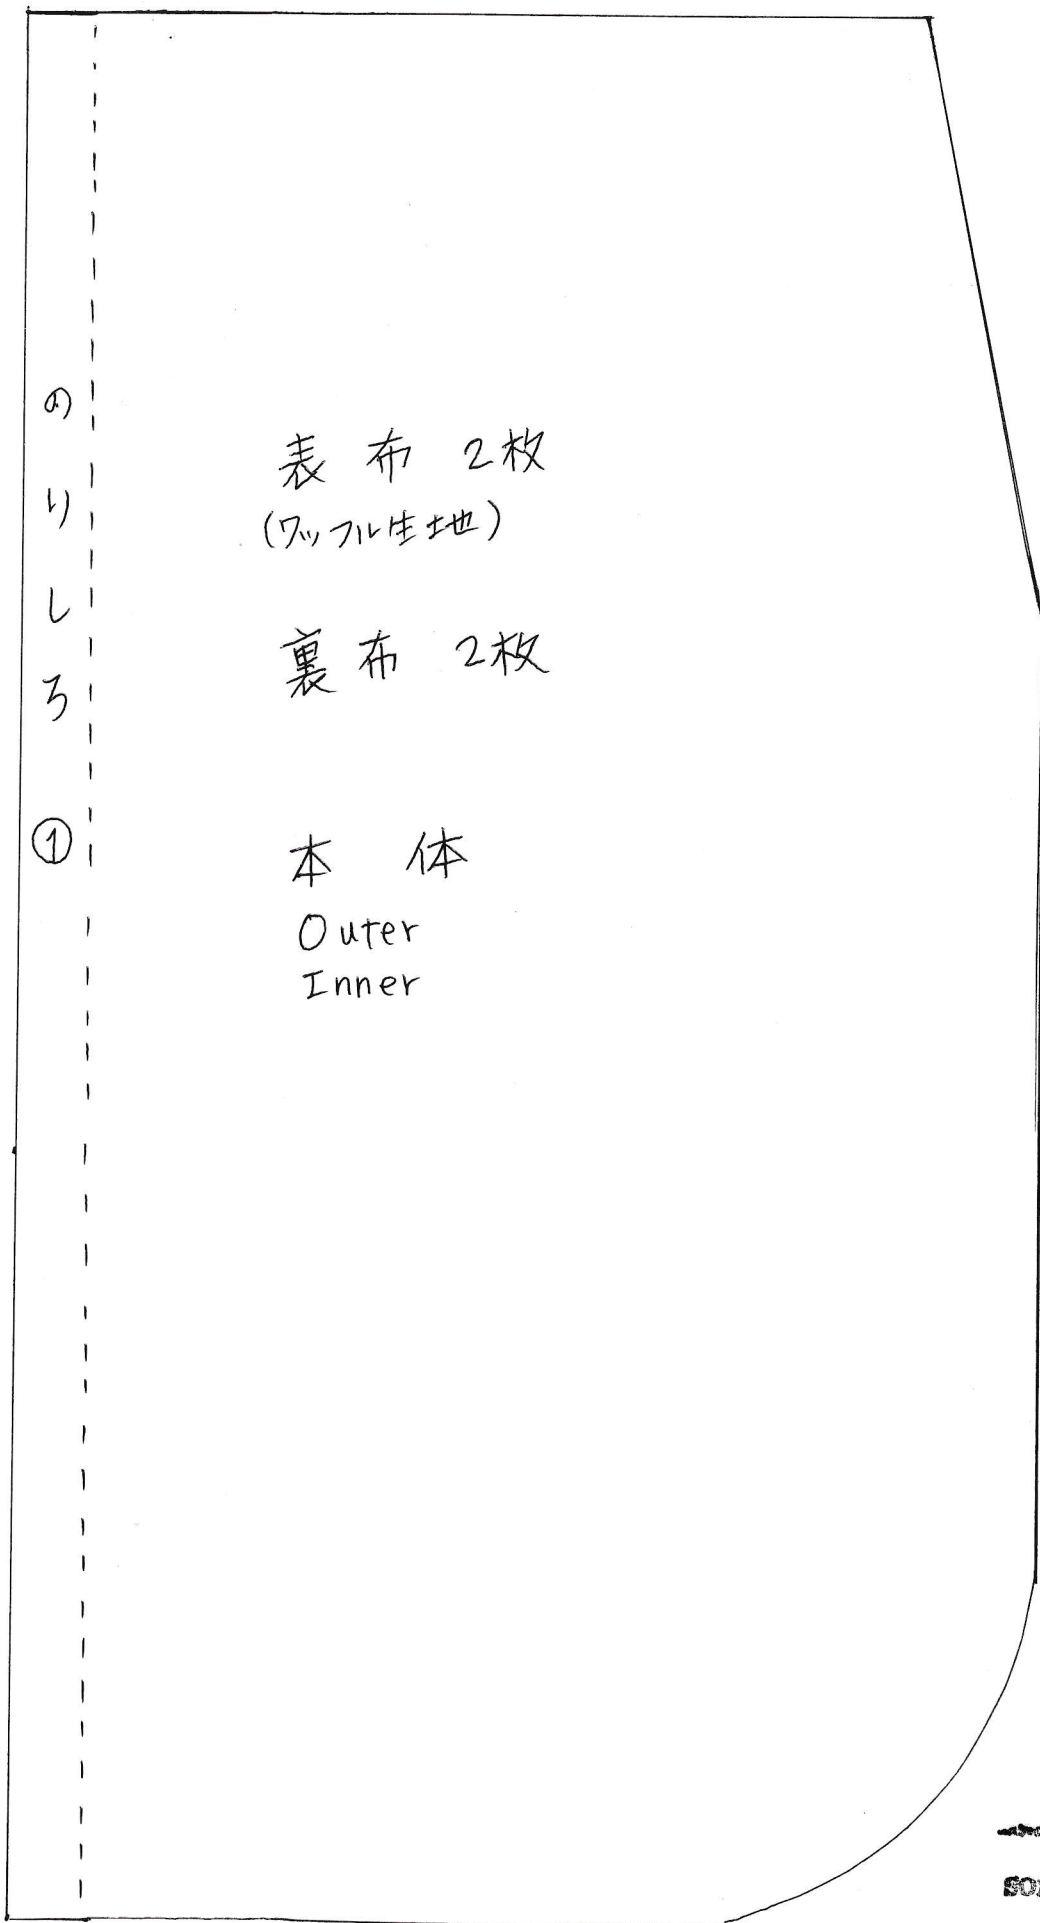 のりしろ ①
表布 2枚
(ワッフル生地)
裏布 2枚
本体
Outer
Inner